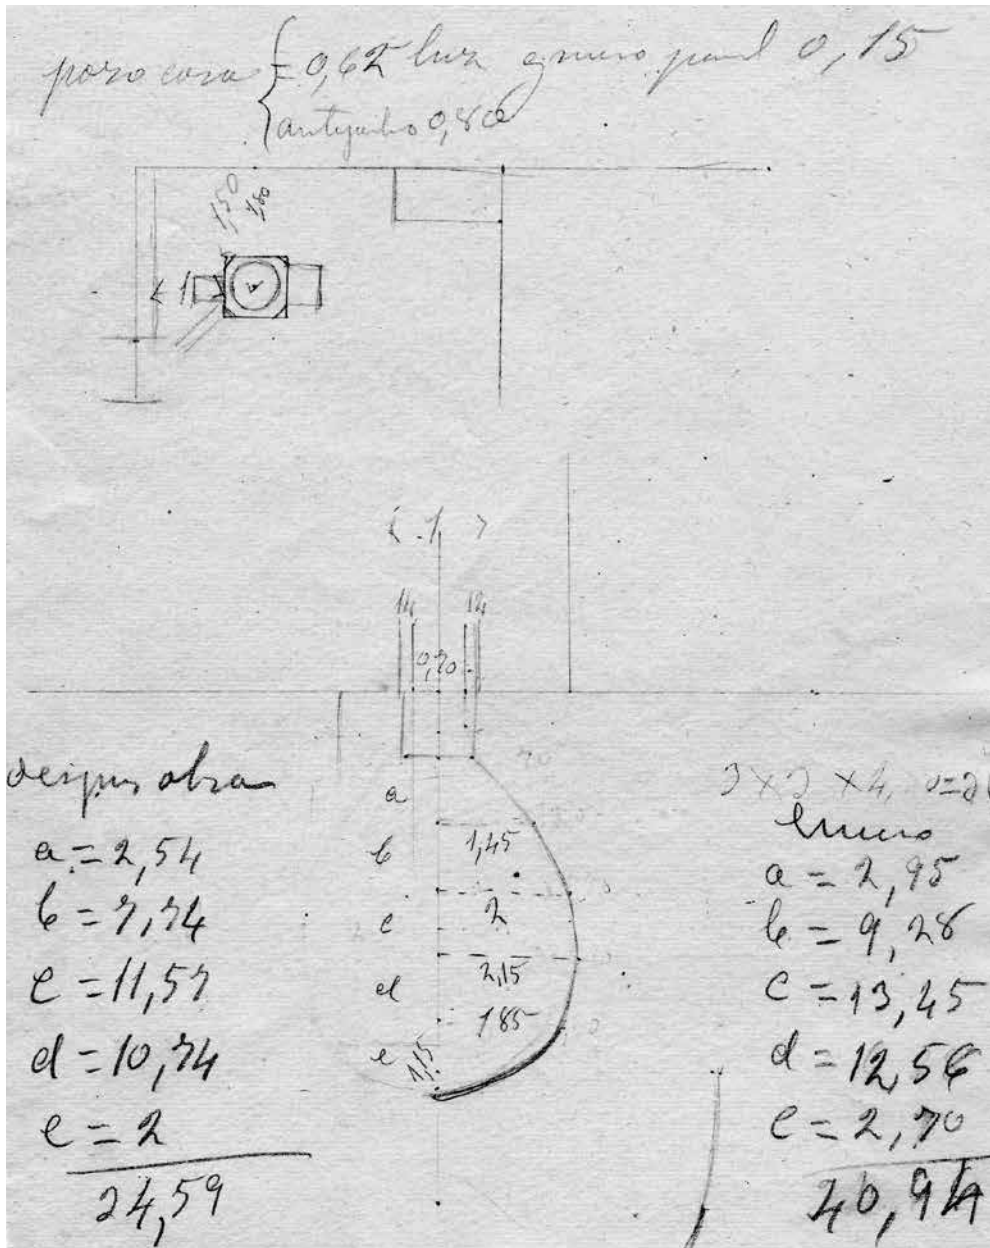 pozo casa { = 0,62 luz grueso pared 0,15
antepecho 0,80
1,50
1,80
< 1
< 1, >
14 14
0,70
despues obra
a = 2,54
b = 7,74
c = 11,57
d = 10,74
e = 2
34,59
a
b
c
d
e
1,45
2
2,15
1,85
1,15
a = 2,95
b = 9,28
c = 13,45
d = 12,56
e = 2,70
40,94